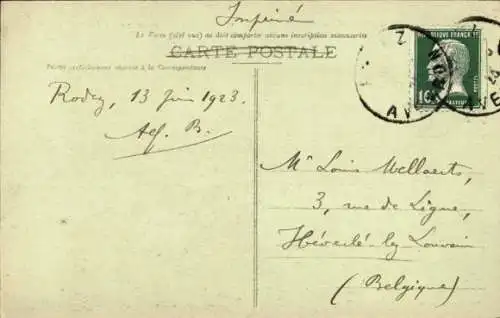 Imprimé
Le Recto (côté vue) ne doit comporter aucune inscription manuscrite
CARTE POSTALE
Partie exclusivement réservée à la Correspondance
RÉPUBLIQUE FRANÇAISE
10c
PASTEUR
Z
AVEYRON
AVE
Rodez, 13 juin 1923.
Alf. B.
Mr Louis Wellaerts,
3, rue de Ligne,
Héverlé-lez Louvain
(Belgique)